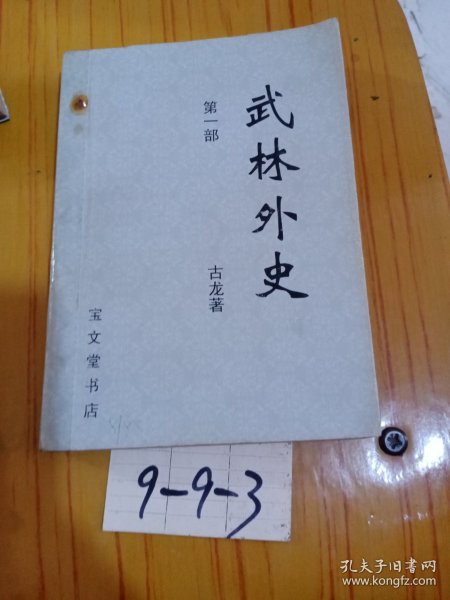 武林外史
第一部
古龙著
宝文堂书店
9-9-3
孔夫子旧书网
www.kongfz.com